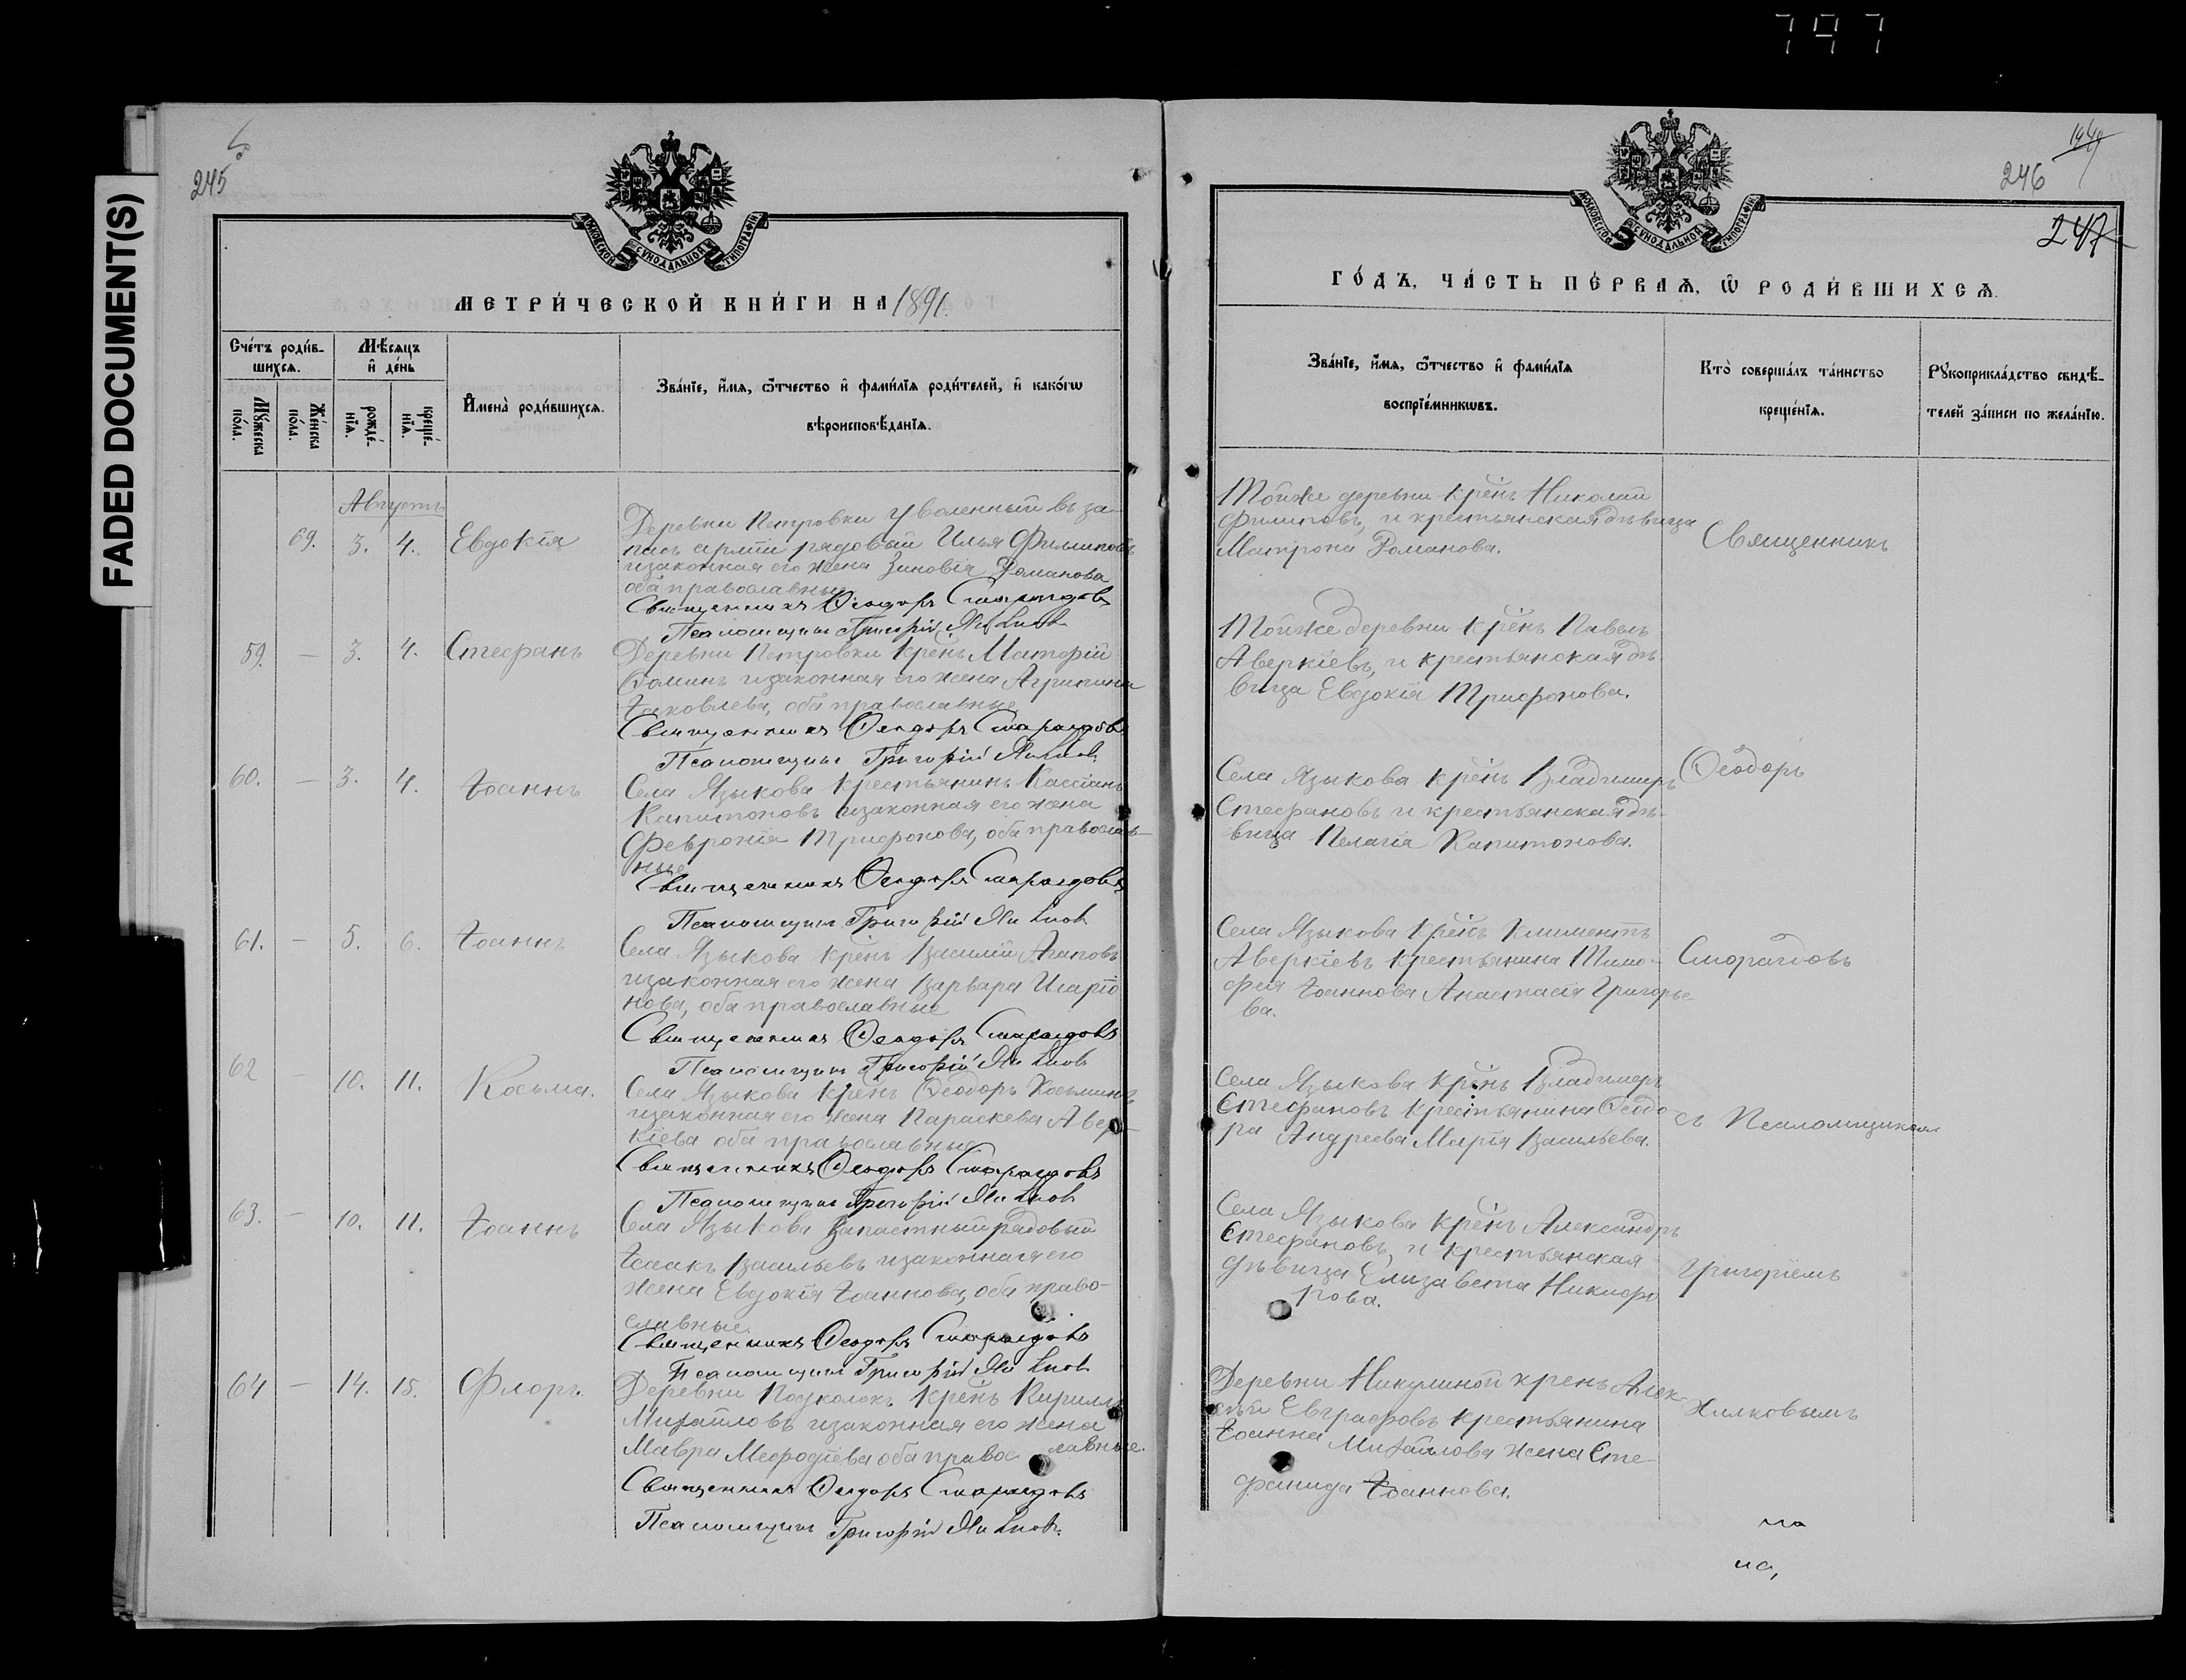 777
FADED DOCUMENT(S)
245
МОСКОВСКОЙ СУНОДАЛЬНОЙ ТИПОГРАФІИ
МЕТРИ́ЧЕСКОЙ КНИ́ГИ НА 1891.
Сче́тъ роди́в-
шихсѧ.
Мѣ́сяцъ
и҆ де́нь
Мꙋ́жеска
по́ла.
Же́нска
по́ла.
рожде́-
нїѧ.
креще́-
нїѧ.
И҆мена̀ роди́вшихсѧ.
Зва́нїе, и҆́мѧ, ѻ҆́тчество и҆ фами́лїѧ роди́телей, и҆ како́гѡ
вѣроисповѣ́данїѧ.
Августъ
69. 3. 4. Евдокія
Деревни Петровки уволенный въ за-
пасъ арміи рядовый Илья Филиповъ
изаконная его жена Зиновія Романова
оба православные
Священникъ Ѳеодоръ Смарагдовъ
Псаломщикъ Григорій
59. — 3. 4. Стефанъ
Деревни Петровки крен̃ъ
Ѳоминъ изаконная его жена Агрипина
Іаковлева, оба православные
Священникъ Ѳеодоръ Смарагдовъ
Псаломщикъ Григорій
60. — 3. 4. Іоаннъ
Села Языкова крестьянинъ Кассіанъ
Капитоновъ изаконная его жена
Февронія Трифонова, оба православ-
ные
Священникъ Ѳеодоръ Смарагдовъ
Псаломщикъ Григорій
61. — 5. 6. Іоаннъ
Села Языкова крен̃ъ Василій Агаповъ
изаконная его жена Варвара Иларіо
нова, оба православные
Священникъ Ѳеодоръ Смарагдовъ
Псаломщикъ Григорій
62 — 10. 11. Косьма.
Села Языкова крен̃ъ Ѳеодоръ Косьминъ
изаконная его жена Параскева Авер-
кіева оба православные
Священникъ Ѳеодоръ Смарагдовъ
Псаломщикъ Григорій
63. — 10. 11. Іоаннъ
Села Языкова Запастный рядовый
Ісаакъ Васильевъ изаконная его
жена Евдокія Іоаннова, оба право-
славные.
Священникъ Ѳеодоръ Смарагдовъ
Псаломщикъ Григорій
64 — 14. 15. Флоръ.
Деревни крен̃ъ Кириллъ
Михайловъ изаконная его жена
Мавра Мефодіева оба православные.
Священникъ Ѳеодоръ Смарагдовъ
Псаломщикъ Григорій
246
247
МОСКОВСКОЙ СУНОДАЛЬНОЙ ТИПОГРАФІИ
ГО́ДЪ, ЧА́СТЬ ПЕ́РВАѦ, Ѡ҆ РОДИ́ВШИХСѦ.
Зва́нїе, и҆́мѧ, ѻ҆́тчество и҆ фами́лїѧ
воспрїе́мникѡвъ.
Кто̀ соверша́лъ та́инство
креще́нїѧ.
Рꙋкоприкла́дство свидѣ́-
телей за́писи по жела́нїю.
Тойже деревни крен̃ъ Николай
Филиповъ, и крестьянская дѣвица
Матрона Романова.
Священникъ
Тойже деревни крен̃ъ Павелъ
Аверкіевъ, и крестьянская дѣ-
вица Евдокія Трифонова.
Села Языкова крен̃ъ Владимиръ
Стефановъ и крестьянская дѣ-
вица Пелагія Капитонова.
Ѳеодоръ
Села Языкова крен̃ъ Климентъ
Аверкіевъ крестьянина Тимо-
фея Іоаннова Анастасія Григорье
ва.
Смарагдовъ
Села Языкова крен̃ъ Владимеръ
Стефановъ крестьянина Ѳеодо-
ра Андреева Марія Васильева.
съ Псаломщикомъ
Села Языкова крен̃ъ Александръ
Стефановъ, и крестьянская
дѣвица Елизавета Никифо
рова.
Григоріемъ
Деревни Никулиной крен̃ъ Алек-
сѣй Евграфовъ крестьянина
Іоанна Михайлова жена Сте-
фанида Іоаннова.